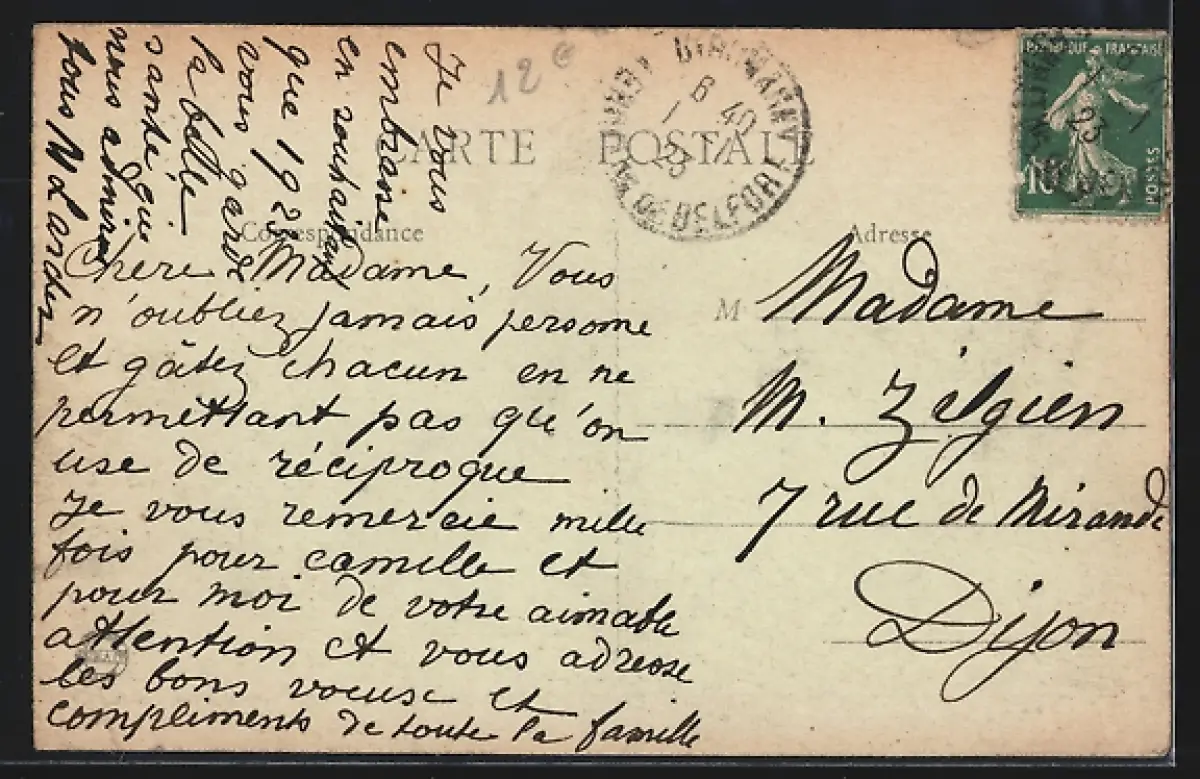 12 e
CARTE POSTALE
Correspondance
Adresse
8 40
1 - 1
23
DE BELFORT
FRANÇAISE
10
POSTES
Chère Madame, Vous
n'oubliez jamais personne
et gâtez chacun en ne
permettant pas qu'on
use de réciproque
Je vous remercie mille
fois pour camille et
pour moi de votre aimable
attention et vous adresse
les bons voeuse et
compliments de toute la famille
Je vous
embrasse
en souhaitant
que 192
vous garde
la belle
santé que
nous admirons
tous
M Madame
M. Zilgien
7 rue de Mirande
Dijon